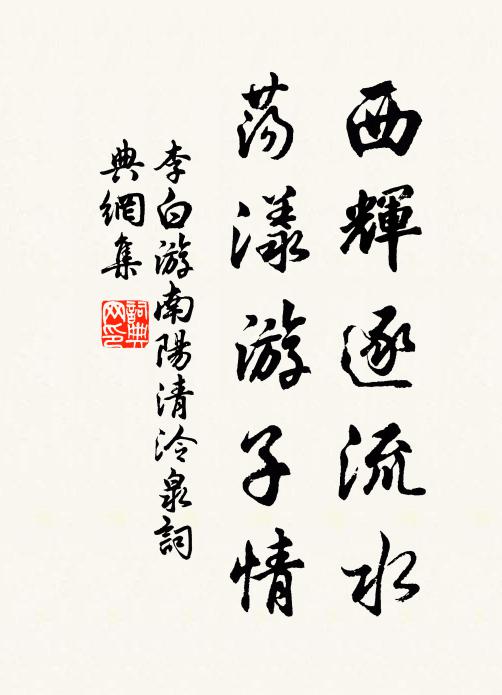 西輝逐流水
蕩漾游子情
李白游南陽清泠泉詞
典網集
詞典
网印